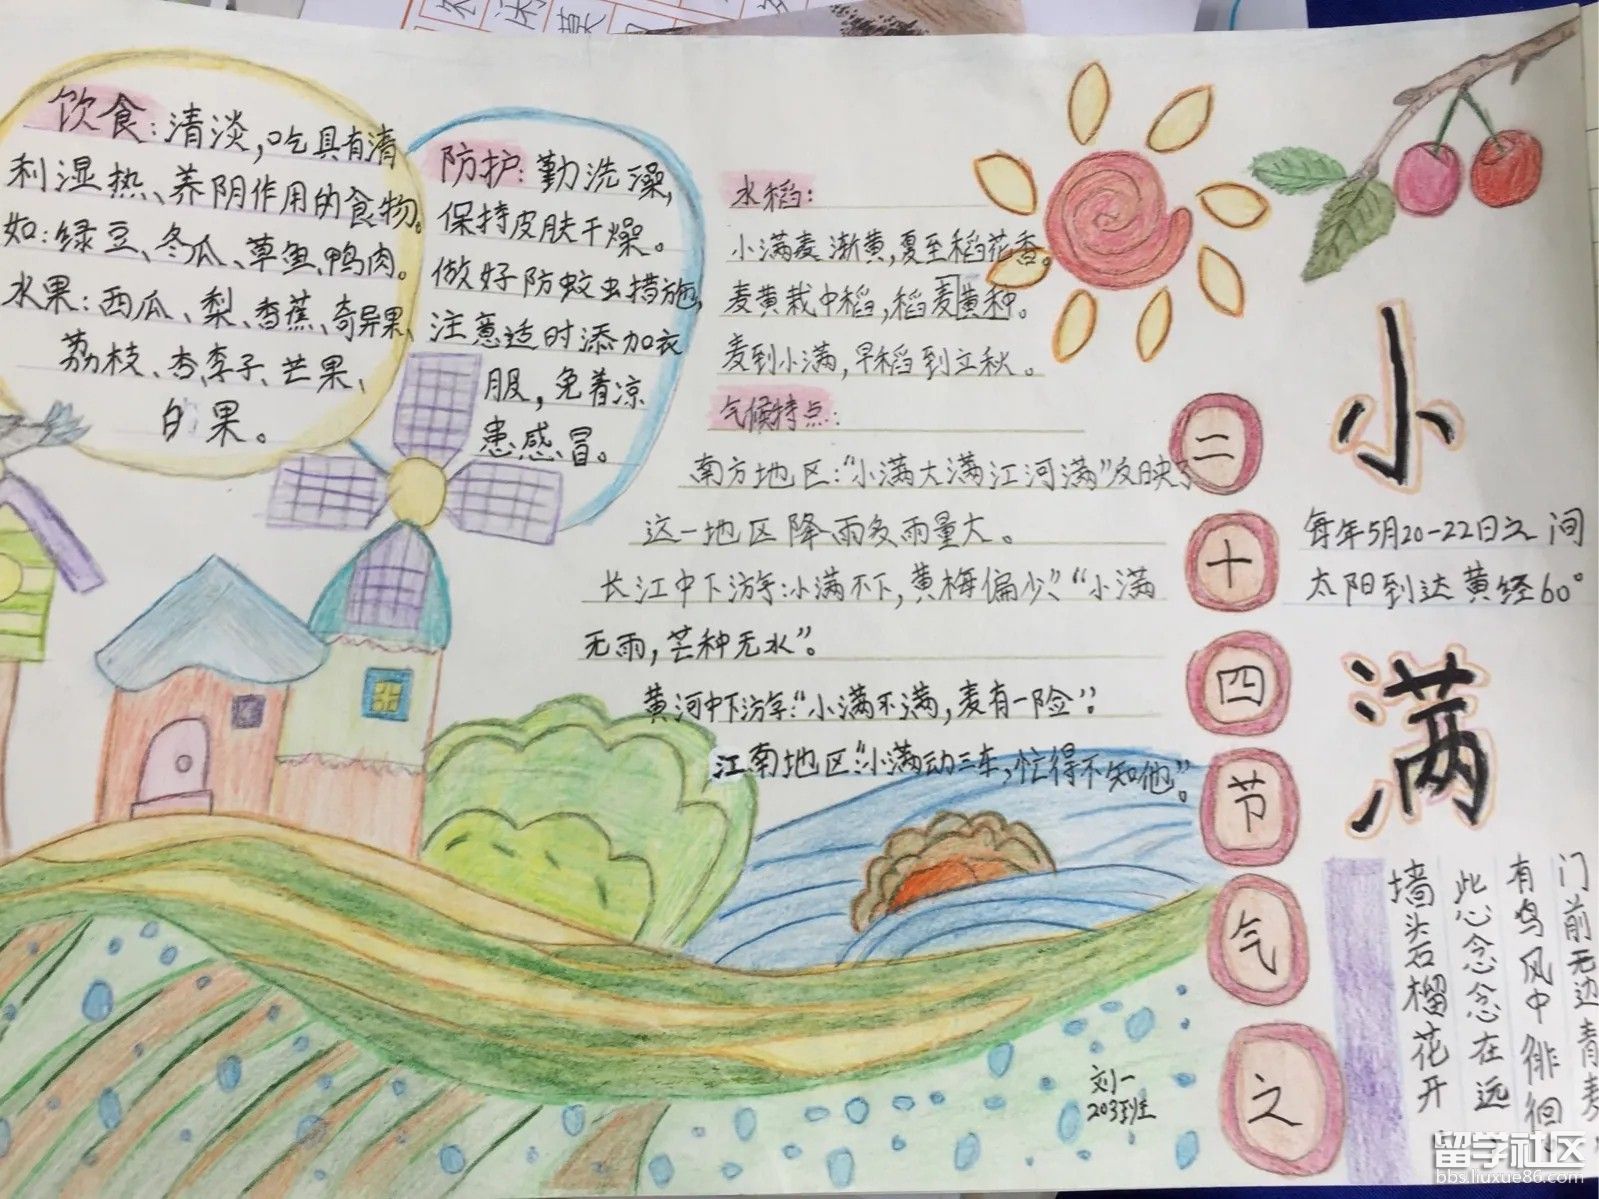 饮食：清淡，吃具有清
利湿热、养阴作用的食物。
如：绿豆、冬瓜、草鱼、鸭肉。
水果：西瓜、梨、香蕉、奇异果、
荔枝、杏、李子、芒果、
的果。
防护：勤洗澡，
保持皮肤干燥。
做好防蚊虫措施，
注意适时添加衣
服，免着凉
患感冒。
水稻：
小满麦渐黄，夏至稻花香。
麦黄栽中稻，稻麦黄种。
麦到小满，早稻到立秋。
气候特点：
南方地区：“小满大满江河满”反映了
这一地区降雨多雨量大。
长江中下游：小满不下，黄梅偏少、“小满
无雨，芒种无水”。
黄河中下游：“小满不满，麦有一险”：
江南地区“小满动三车，忙得不知他”。
二十四节气之
小满
每年5月20-22日之间
太阳到达黄经60°
门前无边青麦
有鸟风中徘徊
此心念念在远
墙头石榴花开
刘一
203班
留学社区
bbs.liuxue86.com